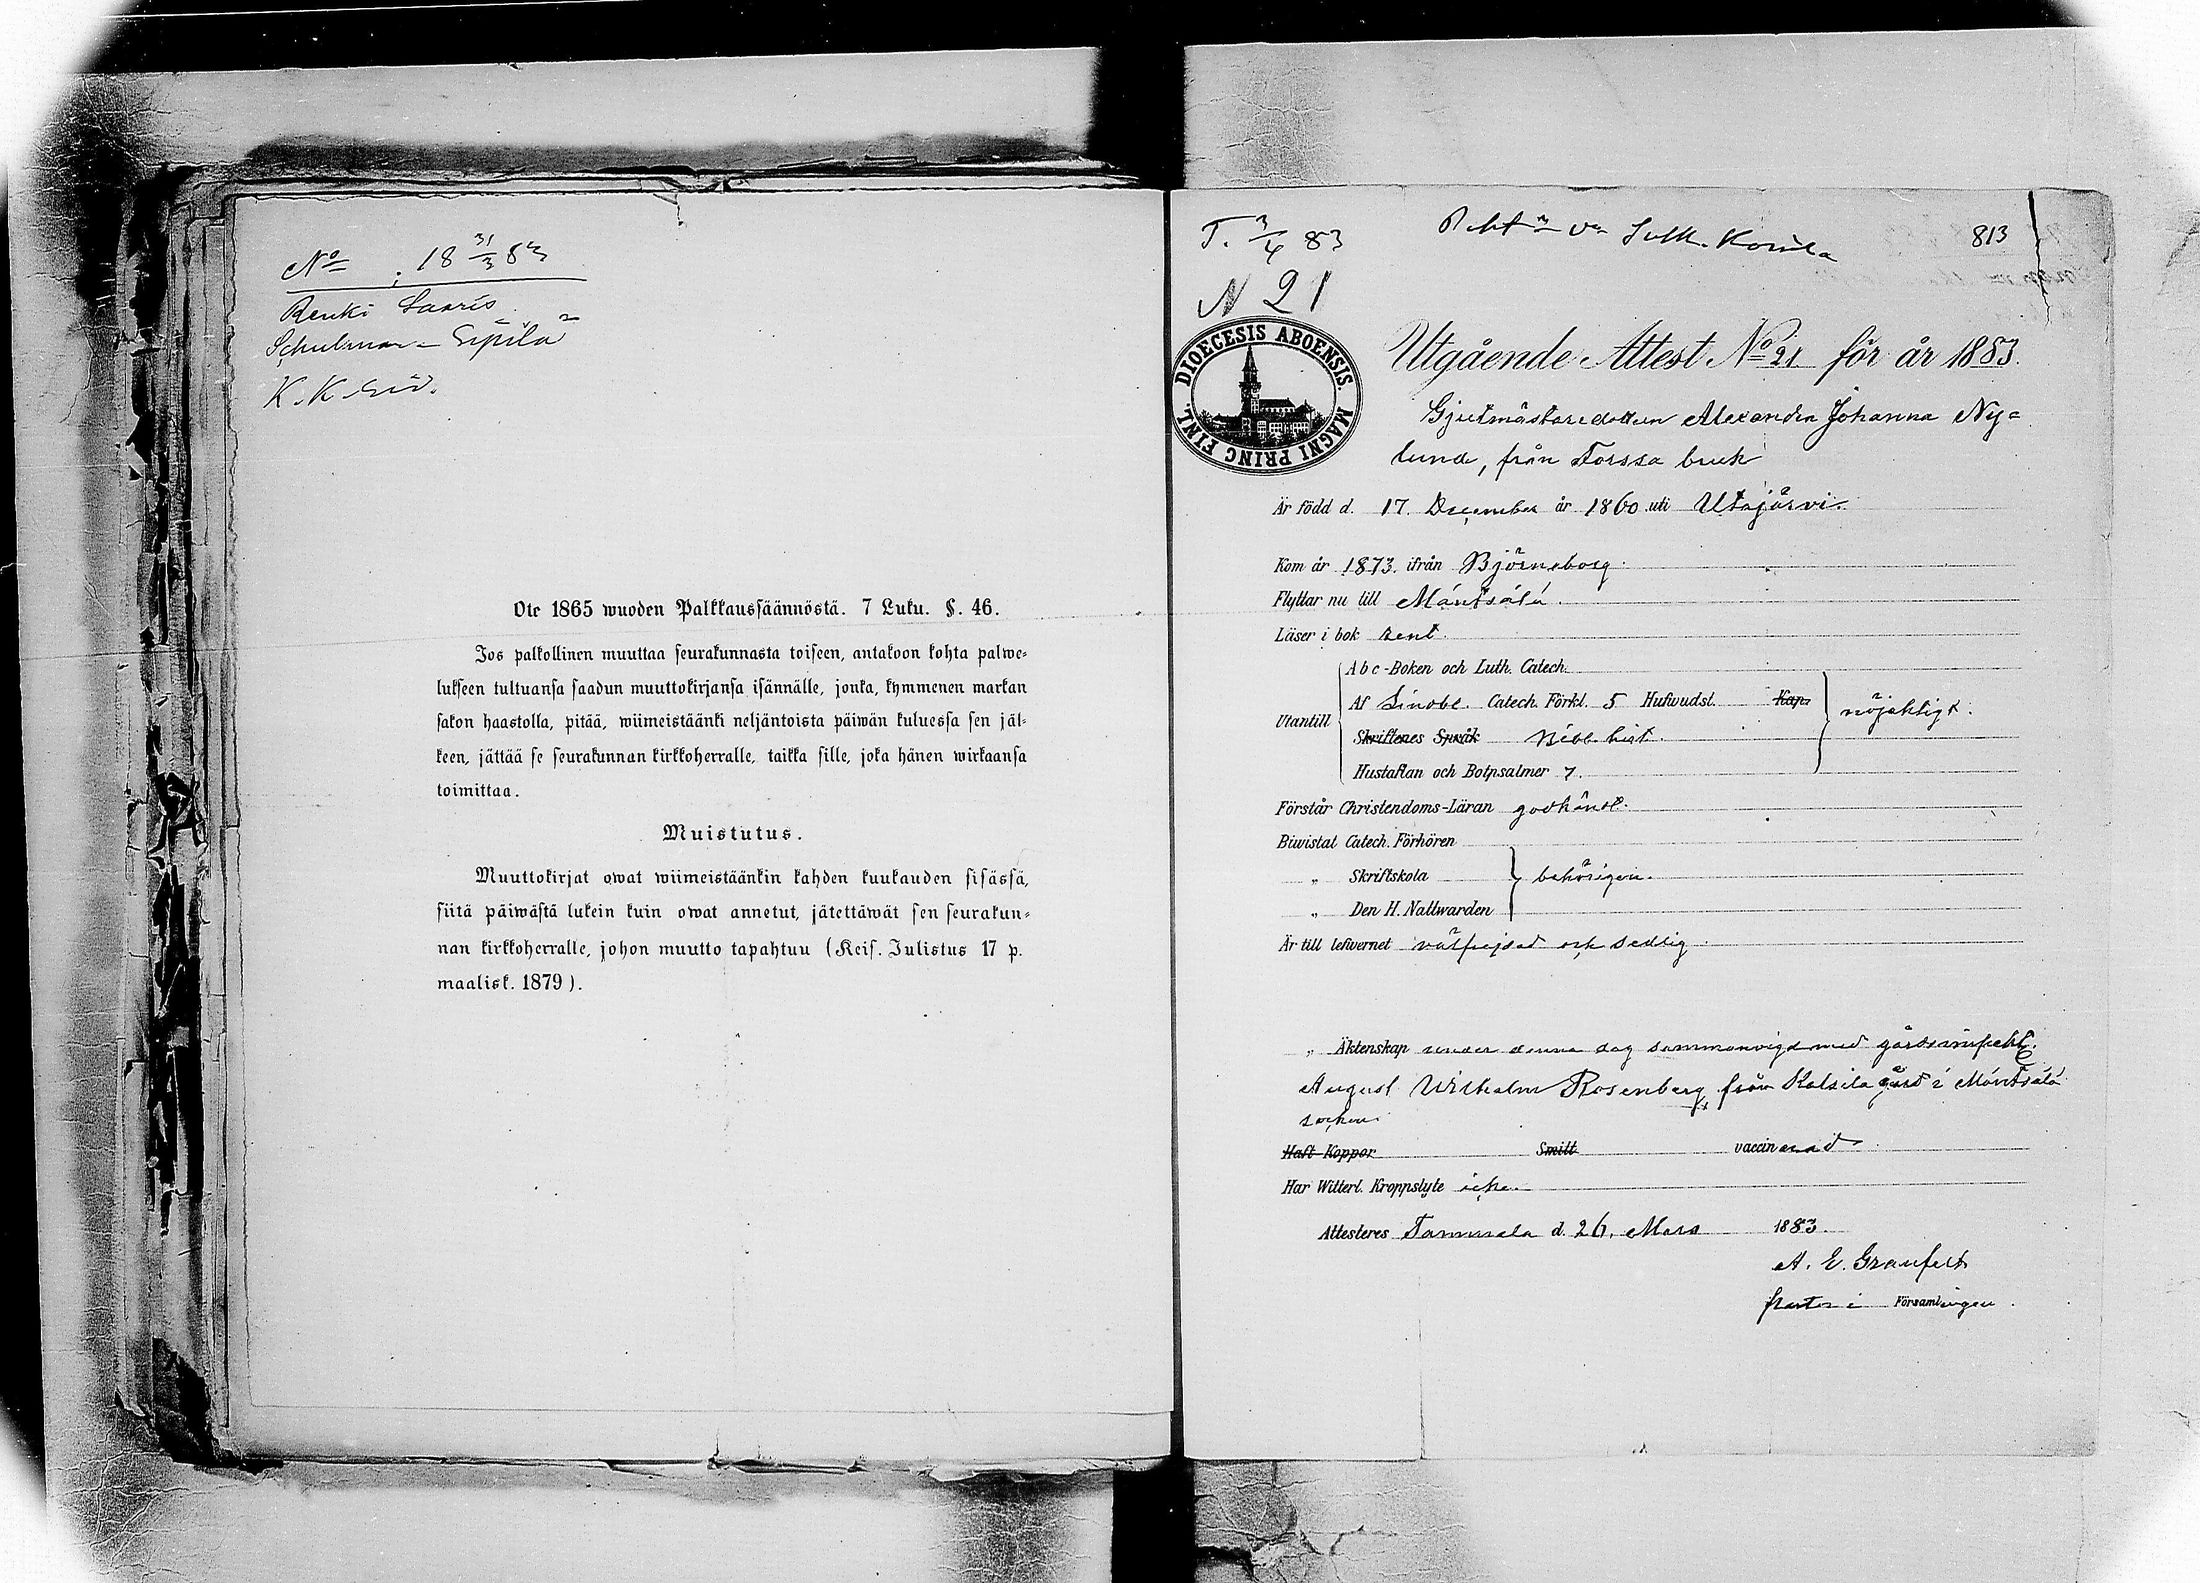 No : 18 31/3 83
Renki Saaris
Schulman - Sipilä
K. K.
Ote 1865 wuoden Palkkaussäännöstä. 7 Luku. §. 46.
Jos palkollinen muuttaa seurakunnasta toiseen, antakoon kohta palwe-
lukseen tultuansa saadun muuttokirjansa isännälle, jonka, kymmenen markan
sakon haastolla, pitää, wiimeistäänki neljäntoista päiwän kuluessa sen jäl-
keen, jättää se seurakunnan kirkkoherralle, taikka sille, joka hänen wirkaansa
toimittaa.
Muistutus.
Muuttokirjat owat wiimeistäänkin kahden kuukauden sisässä,
siitä päiwästä lukein kuin owat annetut, jätettäwät sen seurakun-
nan kirkkoherralle, johon muutto tapahtuu (Keis. Julistus 17 p.
maalisk. 1879).
T. 3/4 83
813
N 21
DIOECESIS ABOENSIS. MAGNI PRINC FINL.
Utgående Attest No 21 för år 1883.
Gjutmästaredottern Alexandra Johanna Ny=
lund, från Forssa bruk
Är född d. 17. December år 1860 uti Utajärvi.
Kom år 1873. ifrån Björneborg.
Flyttar nu till Mäntsälä.
Läser i bok rent.
Abc-Boken och Luth. Catech.
Utantill
Af Sinobl. Catech. Förkl. 5 Hufwudst. Kap.
Skriftenes Språk Bibl. hist.
nöjaktigt.
Hustaflan och Botpsalmer 7.
Förstår Christendoms-Läran godkändt.
Biwistat Catech. Förhören
„ Skriftskola
behörigen.
„ Den H. Nattwarden
Är till lefwernet välfrejdad och sedlig.
„ Äktenskap under denna dag sammanvigd med gårdsinspekt.
August Wilhelm Rosenberg från Kalsila gård i Mäntsälä
socken.
Haft Koppor Smitt vaccinerad
Har Witterl. Kroppslyte icke.
Attesteres Tammela d. 26. Mars 1883.
A. E. Granfelt
Pastor i Församlingen.